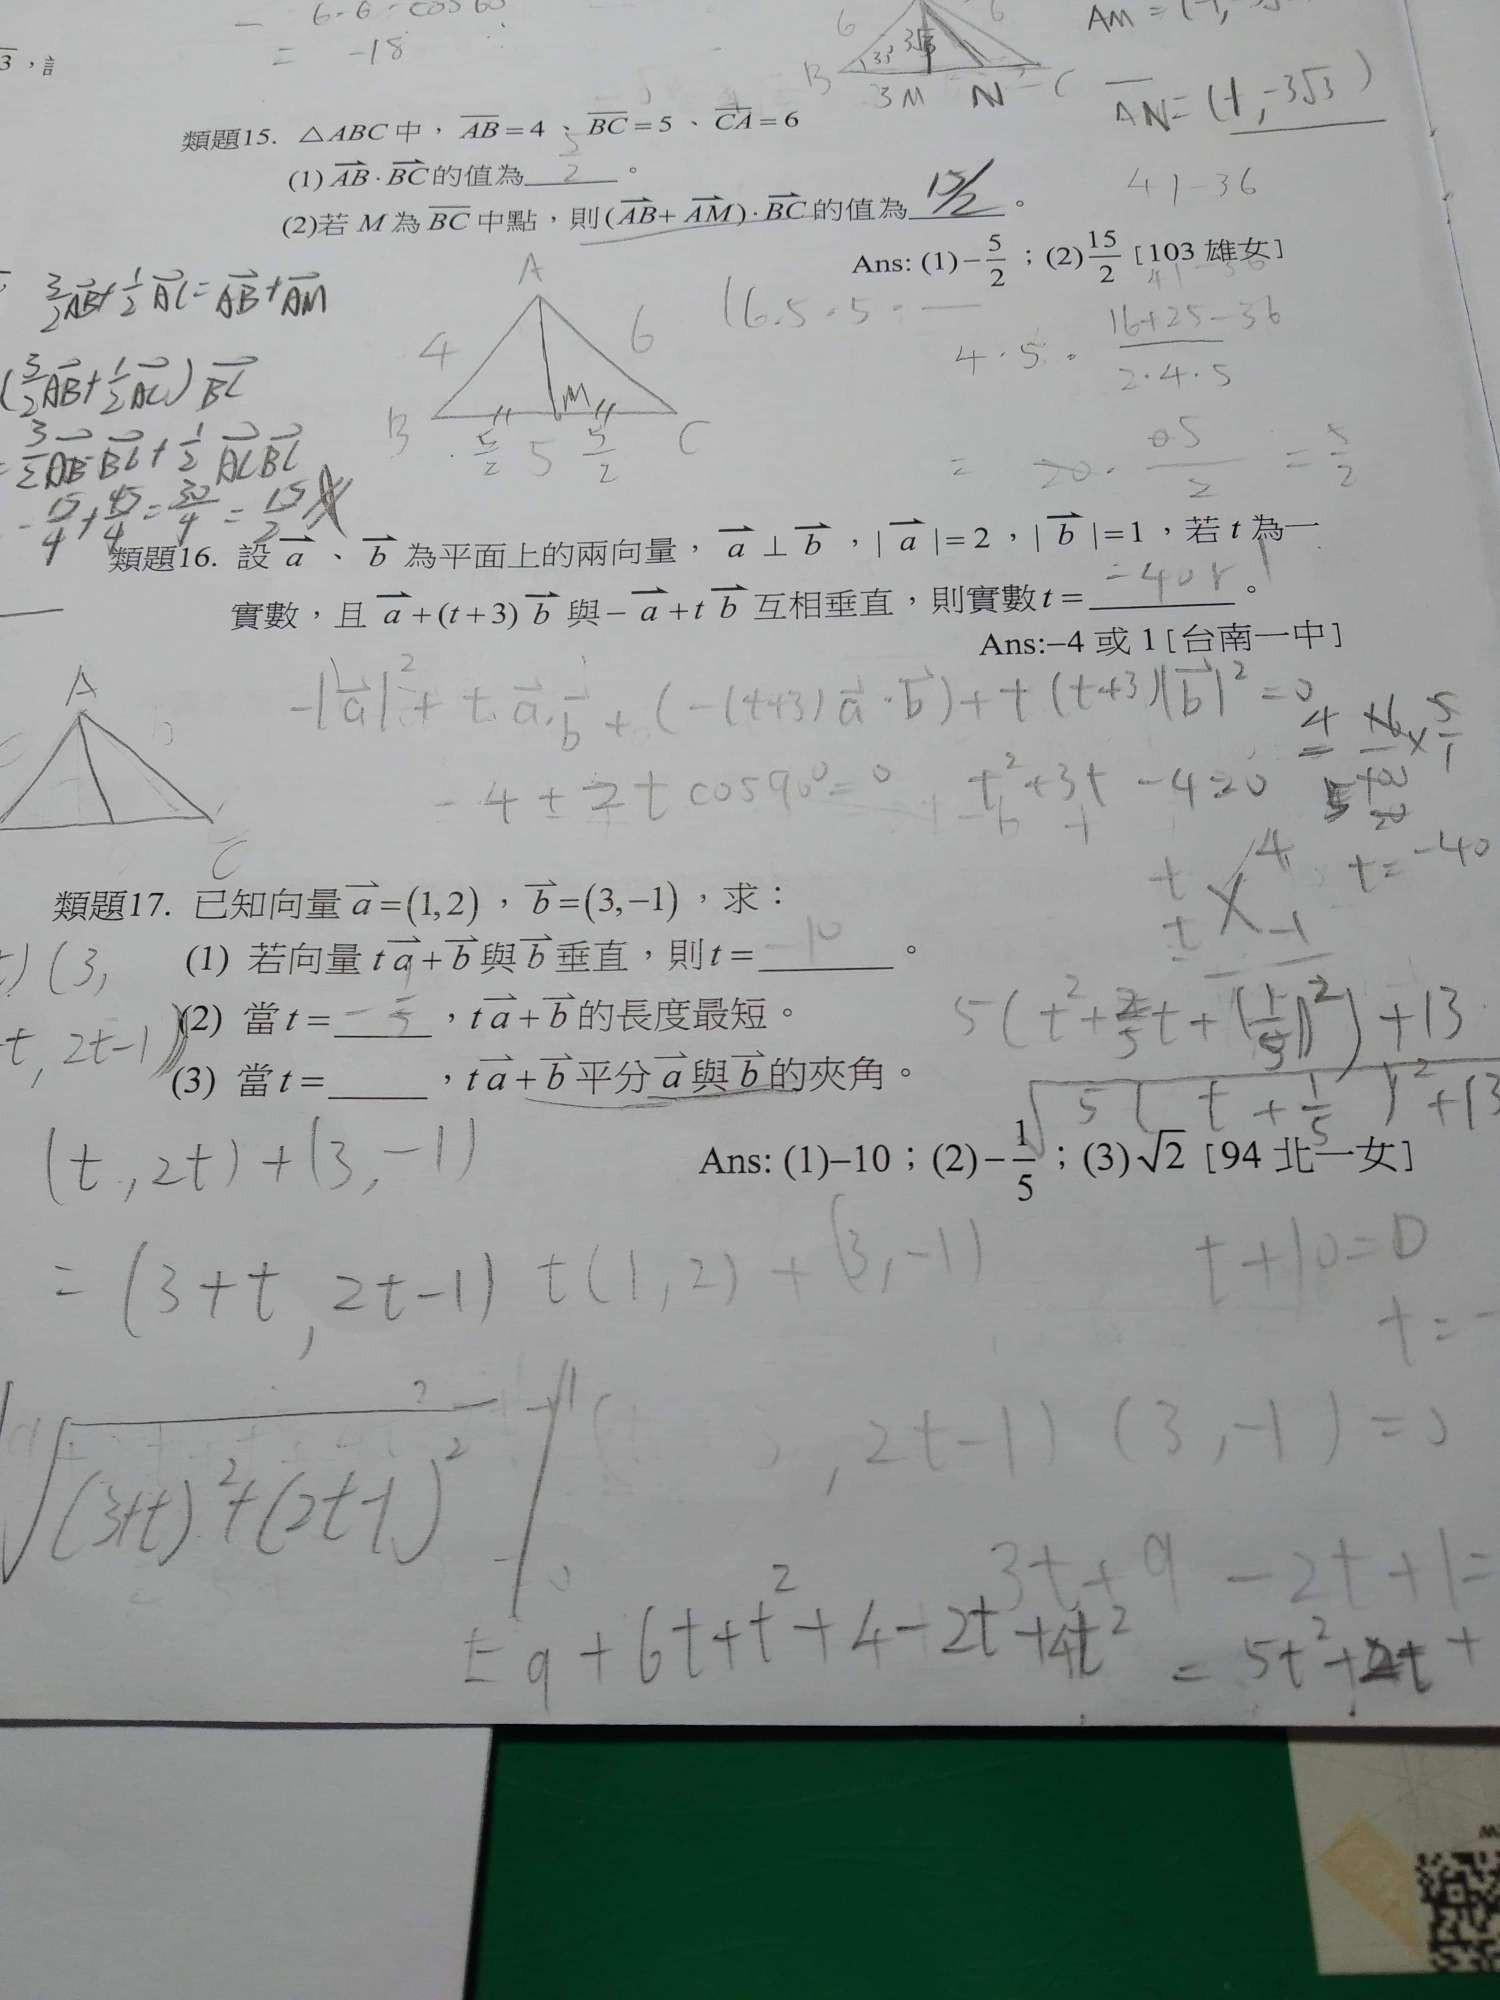 = -18
6 B 3 M N C
AN = (-1, -3√3)
類題15. △ABC 中，AB=4、BC=5、CA=6
(1) AB·BC的值為 5/2 。
41-36
(2)若 M 為 BC 中點，則(AB+AM)·BC的值為 15/2 。
Ans: (1)−5/2；(2)15/2［103 雄女］
3/2AB+1/2AC=AB+AM
(3/2AB+1/2AC)BC
=3/2AB·BC+1/2ACBC
-15/4+45/4=30/4=15/2
A
4 6
B 5/2 M 5 5/2 C
16.5.5.
4·5· 16+25-36 / 2·4·5
= 20· 05/2 = 5/2
類題16. 設 a、b 為平面上的兩向量，a⊥b，|a|=2，|b|=1，若 t 為一
實數，且 a+(t+3)b 與−a+t b 互相垂直，則實數t= -4or1 。
Ans:–4 或 1［台南一中］
-|a|²+t.a.b+(-(t+3)a·b)+t(t+3)|b|²=0
-4+2t cos90°=0 t²+3t-4=0
t 4
t -1
t=-40
A
C
類題17. 已知向量a=(1,2)，b=(3,−1)，求：
(1) 若向量 ta+b與b垂直，則t= -10 。
(2) 當t= -1/5 ，ta+b的長度最短。
(3) 當t= ，ta+b平分a與b的夾角。
t) (3,
t, 2t-1)
5(t²+2/5t+(1/5)²)+13
√5(t+1/5)²+13
Ans: (1)–10；(2)−1/5；(3)√2［94 北一女］
(t, 2t)+(3,-1)
=(3+t, 2t-1) t(1,2)+(3,-1)
t+10=0
t=-
√(3+t)²+(2t-1)²
, 2t-1) (3,-1)=0
3t+9-2t+1=
=9+6t+t²+4-2t+4t² =5t²+2t+